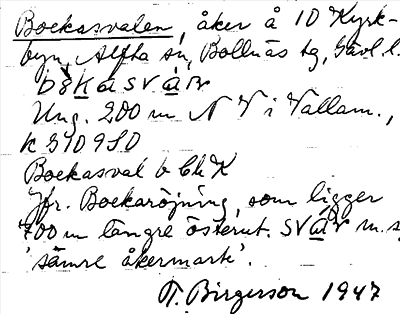 Bockasvalen, åker å 10 Kyrk-
byn, Alfta sn, Bollnäs tg, Gävl. l.
Ung. 200 m N V i Vallam.,
K 3709 SO
Bockasval b Ch K
Jfr. Bockaröjning, som ligger
700 m längre österut. svår m. s
'sämre åkermark'.
T. Birgerson 1947